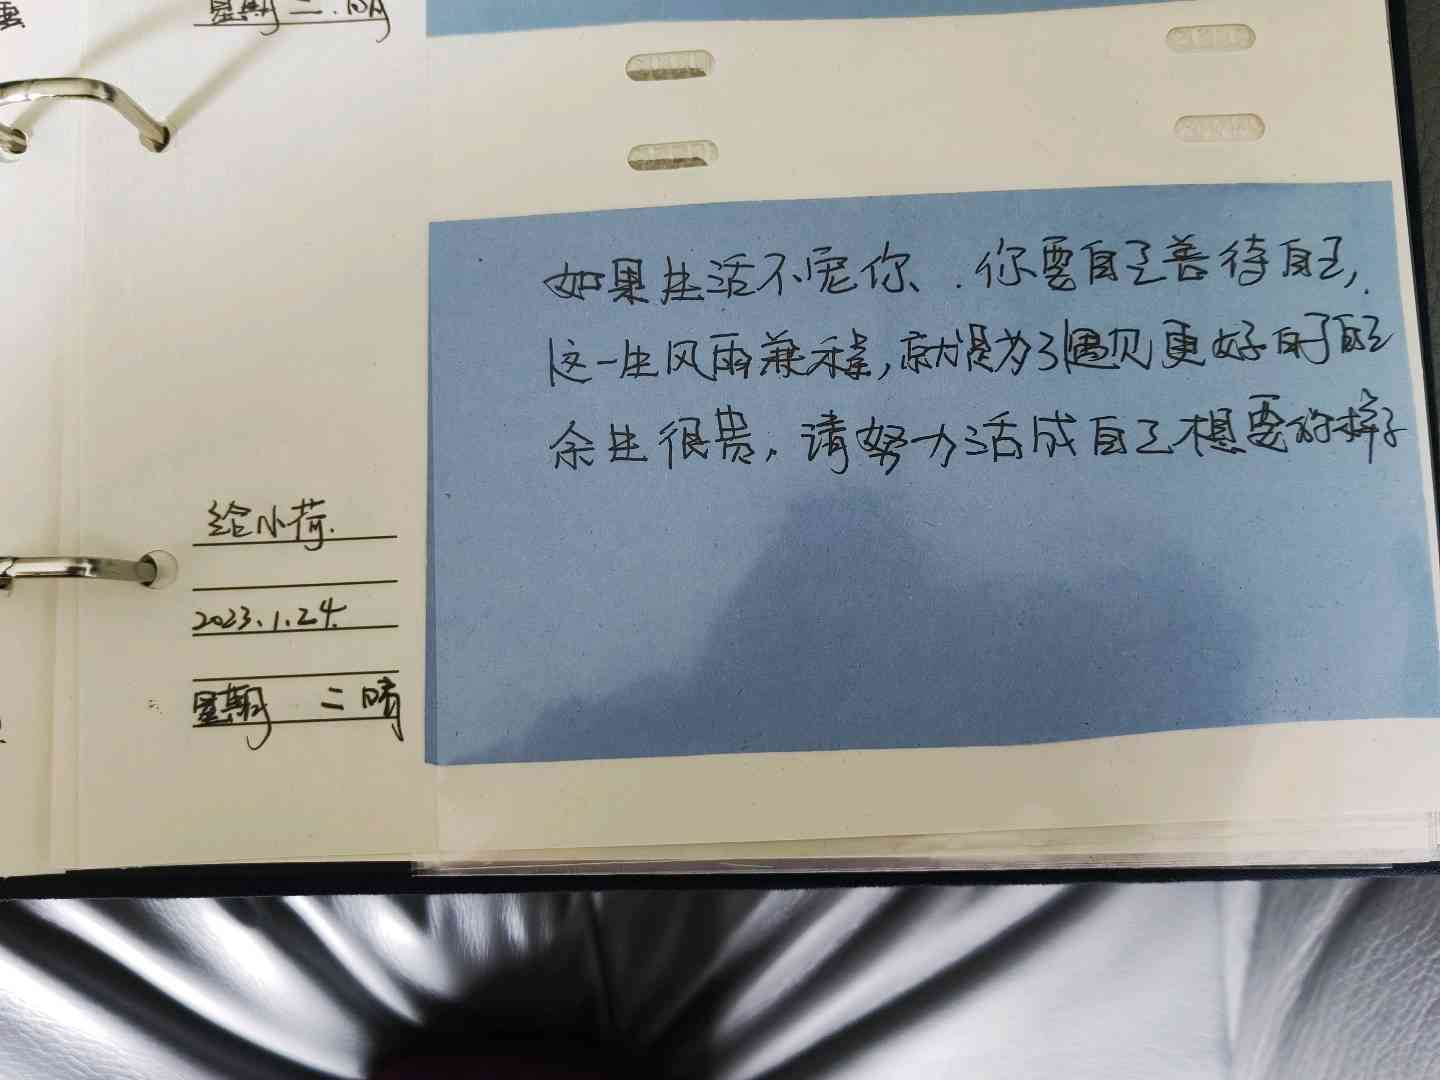 星期二.晴
如果生活不宠你、.你要自己善待自己,
这一生风雨兼程,就是为了遇见更好的自己
余生很贵,请努力活成自己想要的样子
给小荷.
2023.1.24.
星期二晴